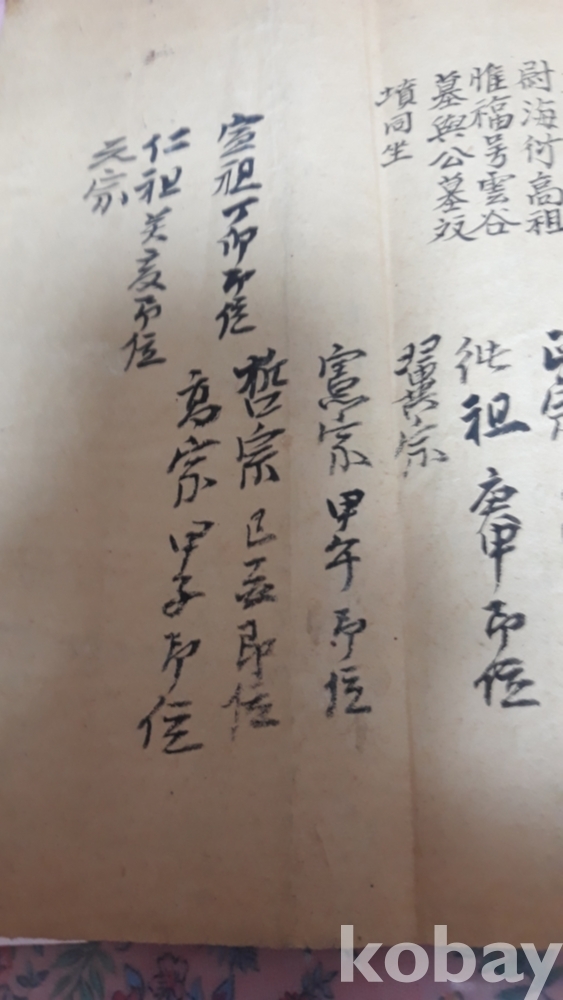 尉海何高祖
惟福号雲谷
墓與公墓政
墳同坐
正宗
純祖庚申即位
翼宗
憲宗甲午即位
哲宗己亥即位
高宗甲子即位
宣祖丁卯即位
仁祖癸亥即位
元宗
kobay